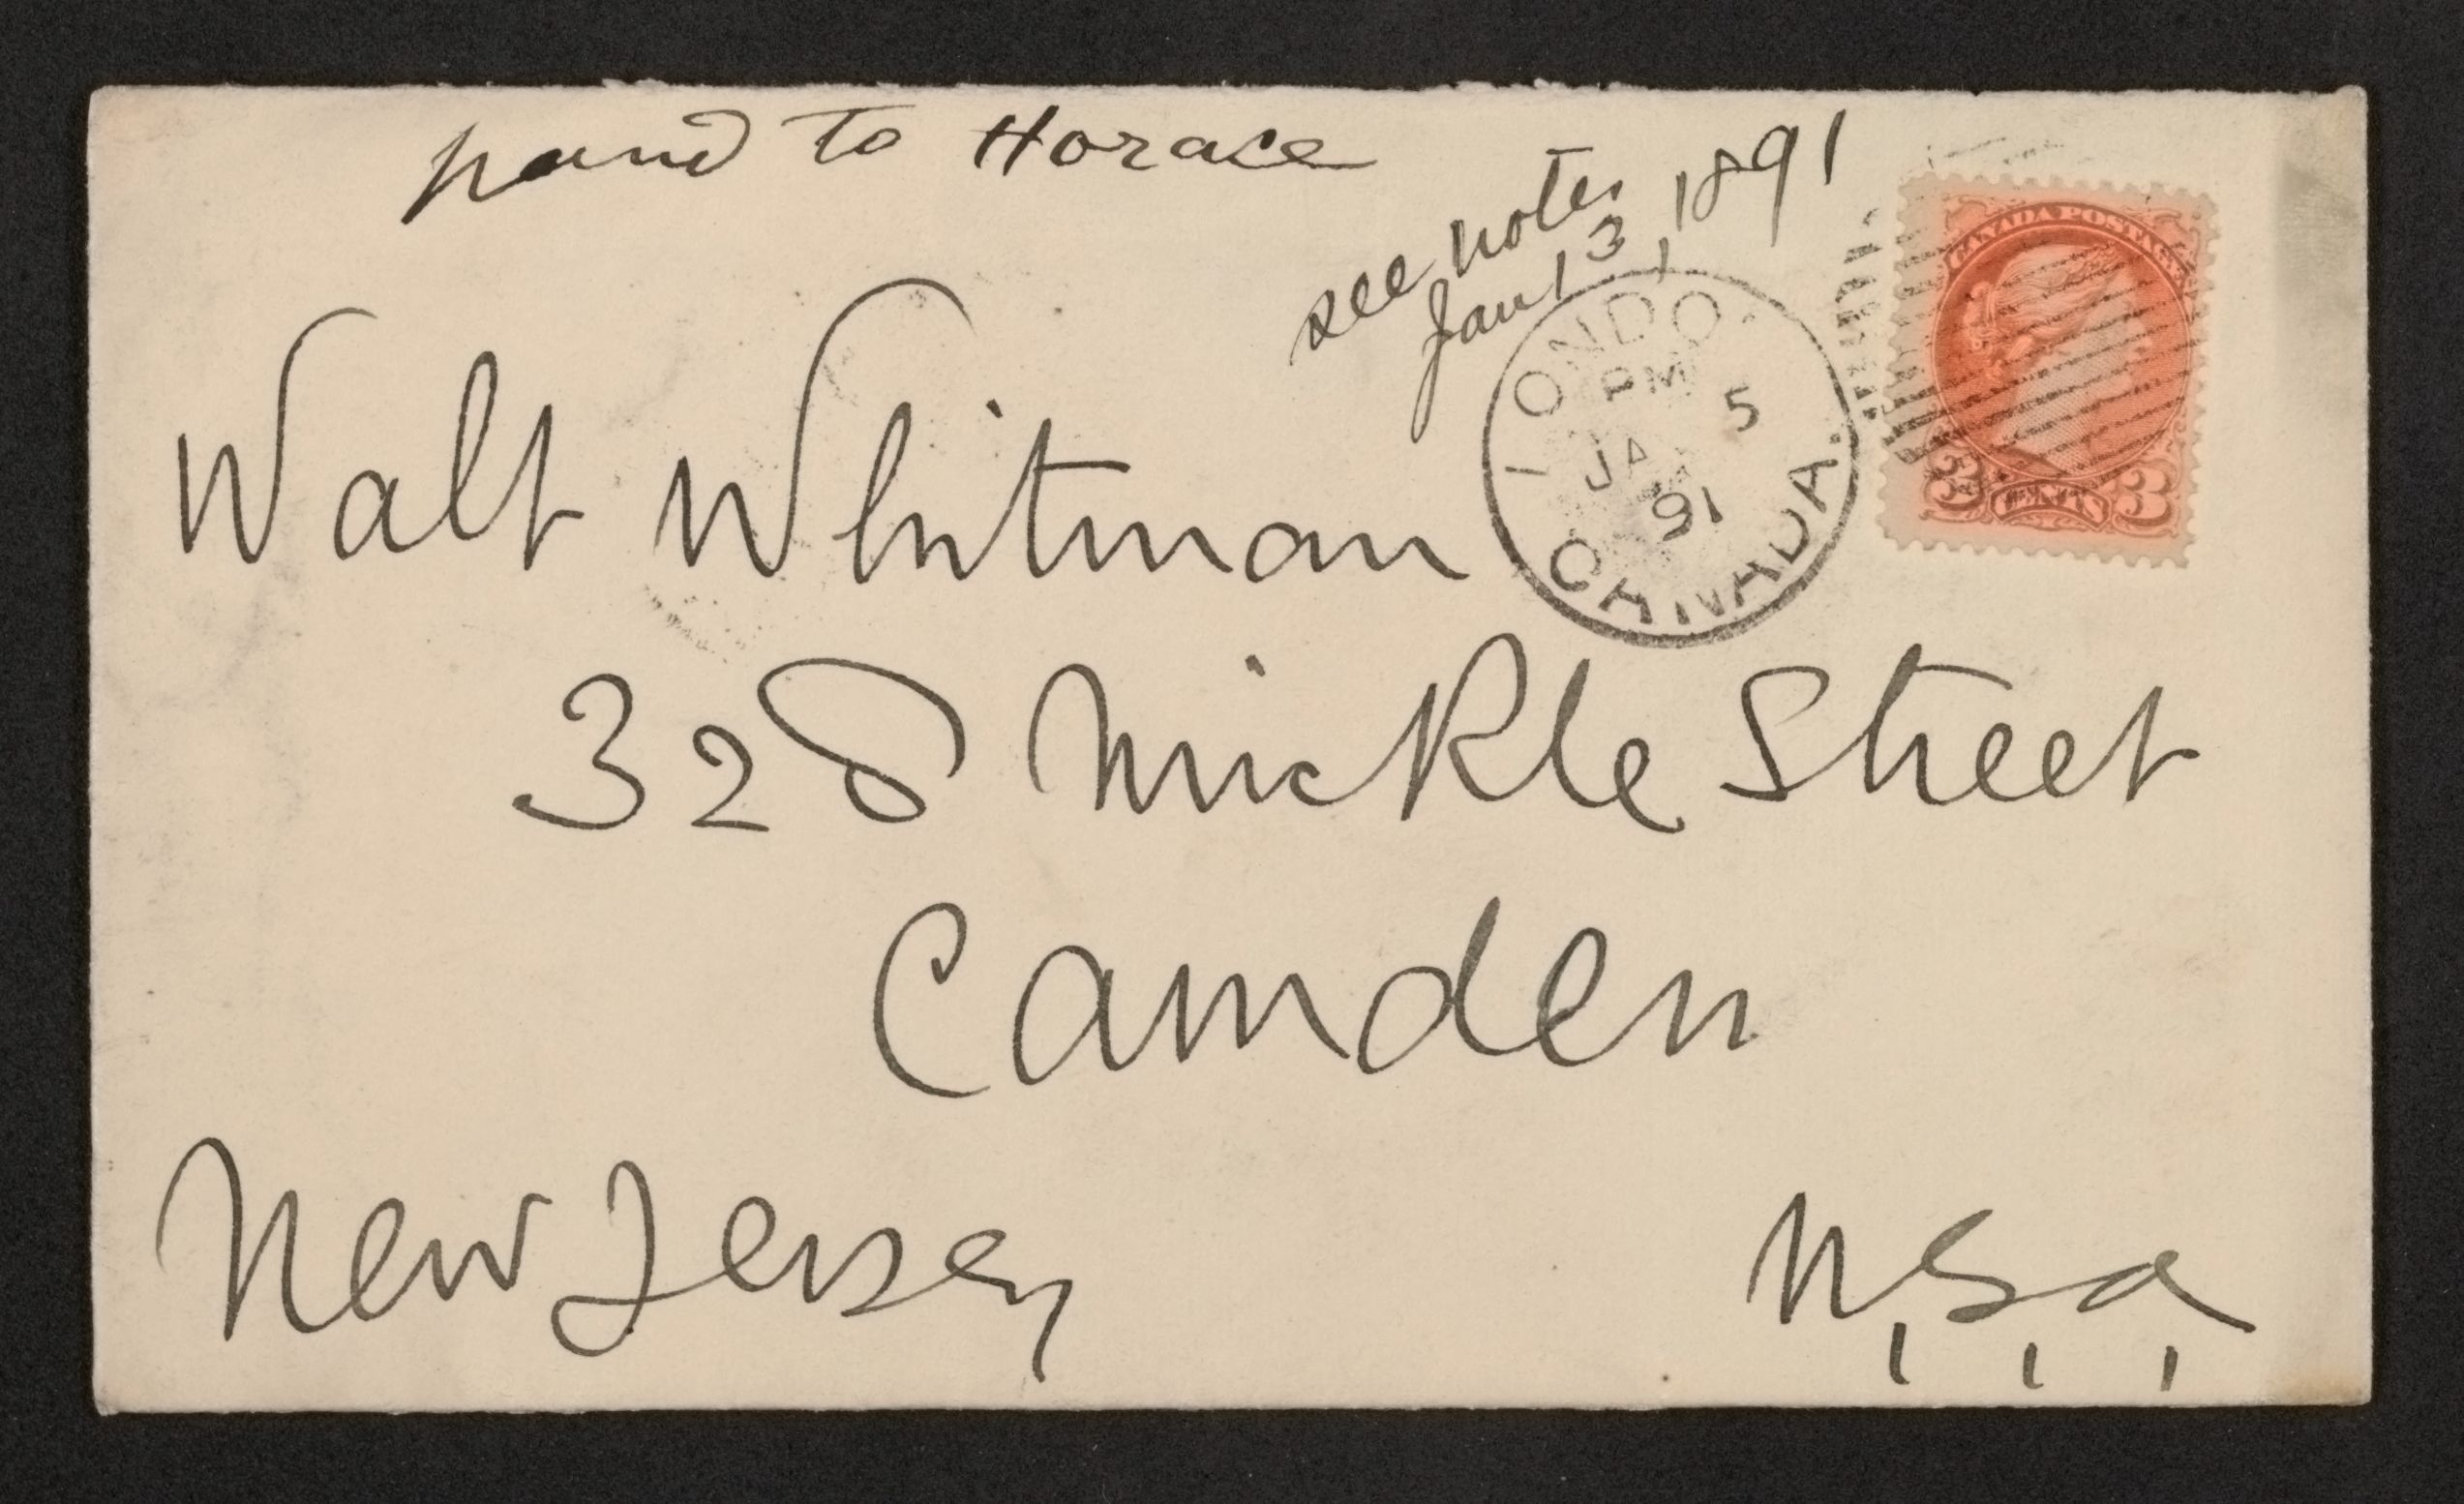 hand to Horace
see notes
Jan 13, 1891
CANADA POSTAGE
3 CENTS 3
LONDON
PM 5
JA
91
CANADA.
Walt Whitman
328 Mickle Street
Camden
New Jersey
U.S.A.